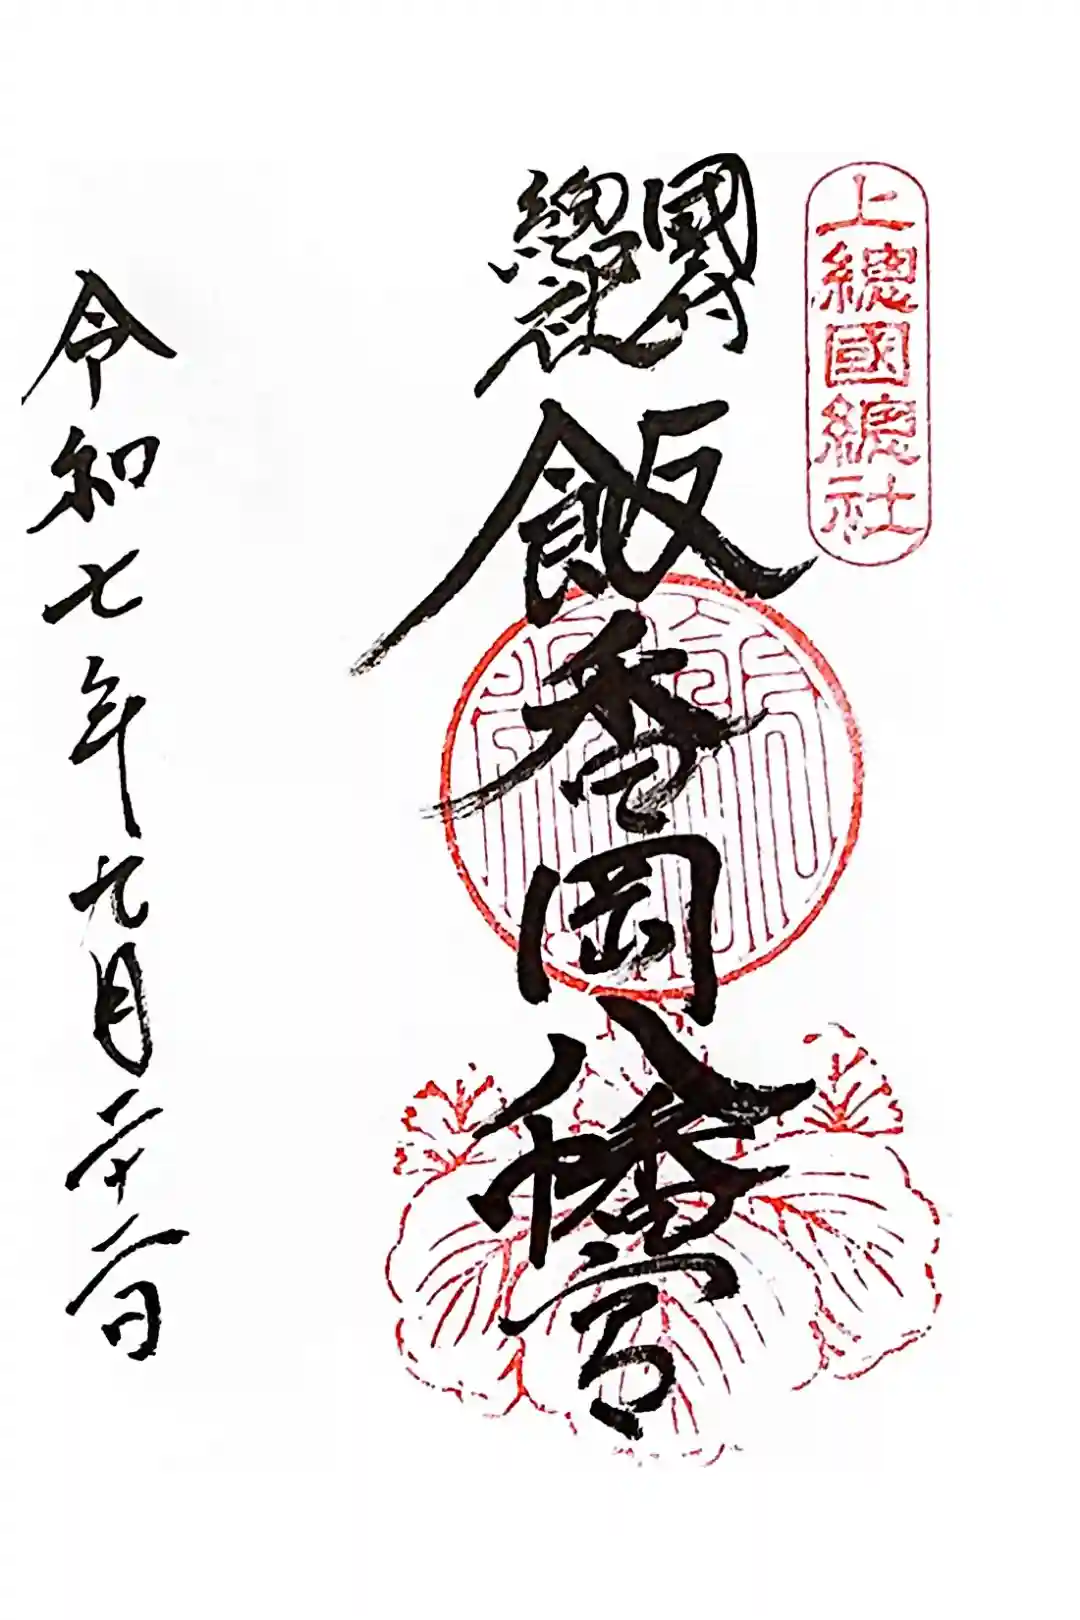 上總國總社
國府
總社
飯香岡八幡宮
令和七年七月二十二日